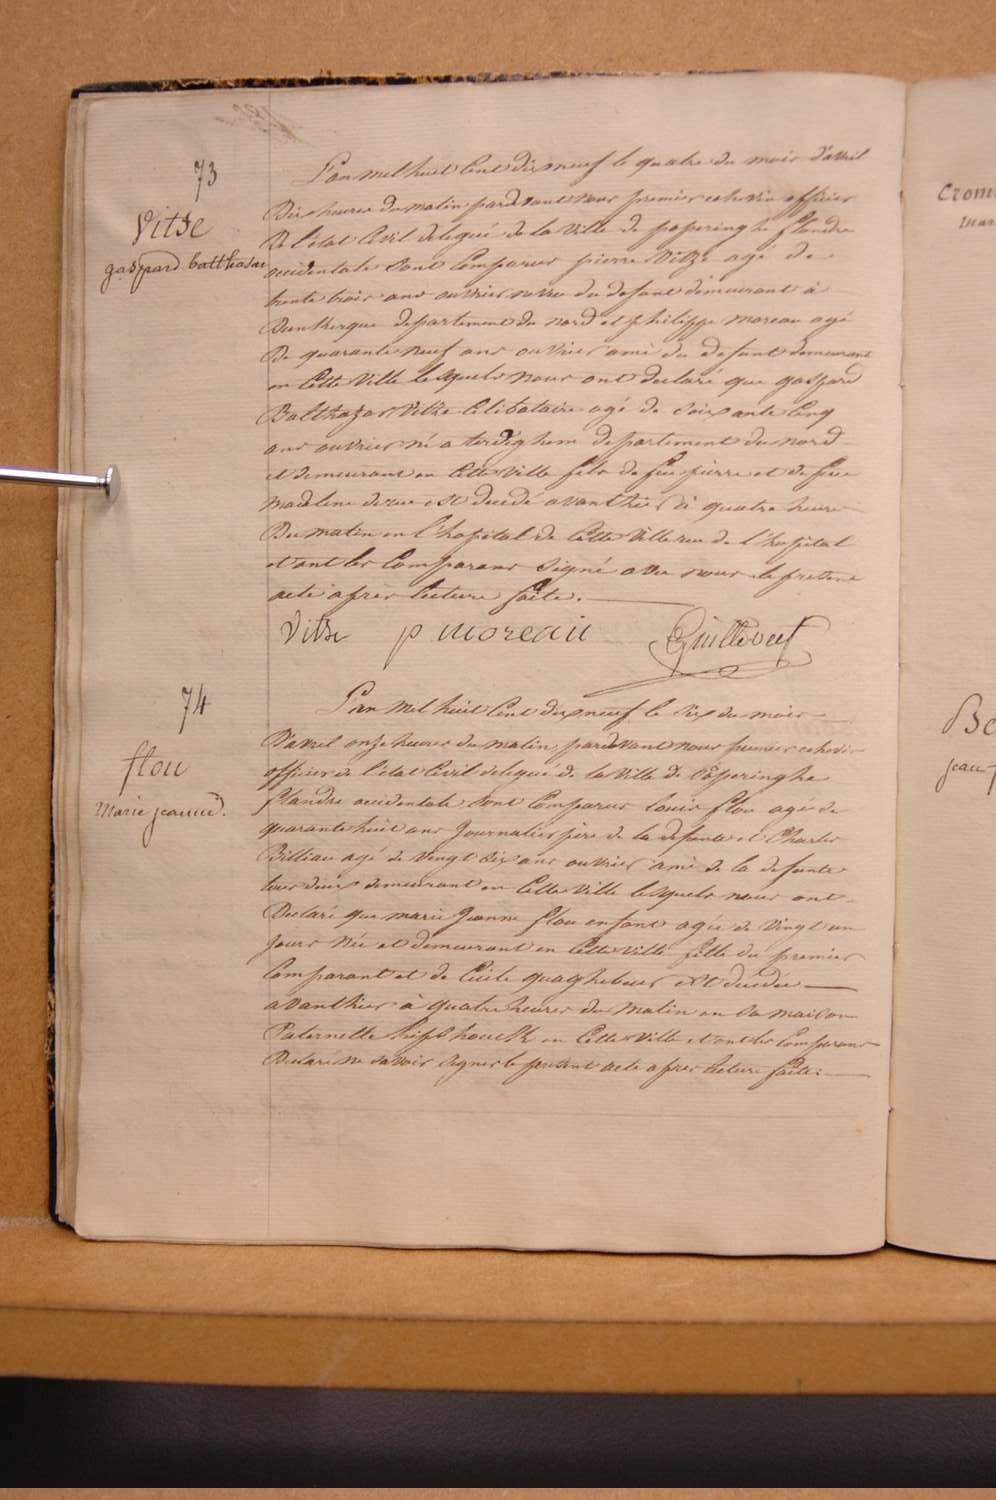 73
Vitse
gaspard balthasar
L'an mil huit Cent dix neuf le quatre du mois d'avril
Dix heures du matin pardevant nous premier echevin officier
De l'état Civil delegué de la ville de poperinghe flandre
occidentale Sont Comparus pierre Vitse agé de
trente trois ans ouvrier neveu du defunt demeurant à
Dunkerque departement du nord et philippe moreau agé
De quarante neuf ans ouvrier ami du defunt demeurant
en Cette Ville lesquels nous ont declaré que gaspard
Balthazar Vitse Celibataire agé de Soixante Cinq
ans ouvrier né a terdeghem departement du nord
et demeurant en Cette Ville fils de feu pierre et de feue
madeleine est decedé avanthier à quatre heures
Du matin en l'hopital de Cette Ville rue de l'hopital
et ont les Comparans Signé avec nous le present
acte après lecture faite.
Vitse p moreau
74
flou
Marie jeanne.
L'an Mil huit Cent dix neuf le Six du mois
D'avril onze heures du matin, pardevant nous premier echevin
officier de l'état Civil delegué de la Ville de Poperinghe
flandre occidentale Sont Comparus Louis flou agé de
quarante huit ans Journalier père de la defunte et Charles
Billiau agé de Vingt Six ans ouvrier ami de la defunte
tous deux demeurant en Cette Ville lesquels nous ont
Declaré que marie Jeanne flou enfant agée de Vingt un
jours Née et demeurant en Cette Ville fille du premier
Comparant et de Cecile quaghebeur est decedée
avanthier à quatre heures du Matin en la maison
Paternelle en Cette Ville et ont les Comparans
Declaré ne Savoir Signer le present acte apres lecture faite.
Crom
Mar
Be
jean